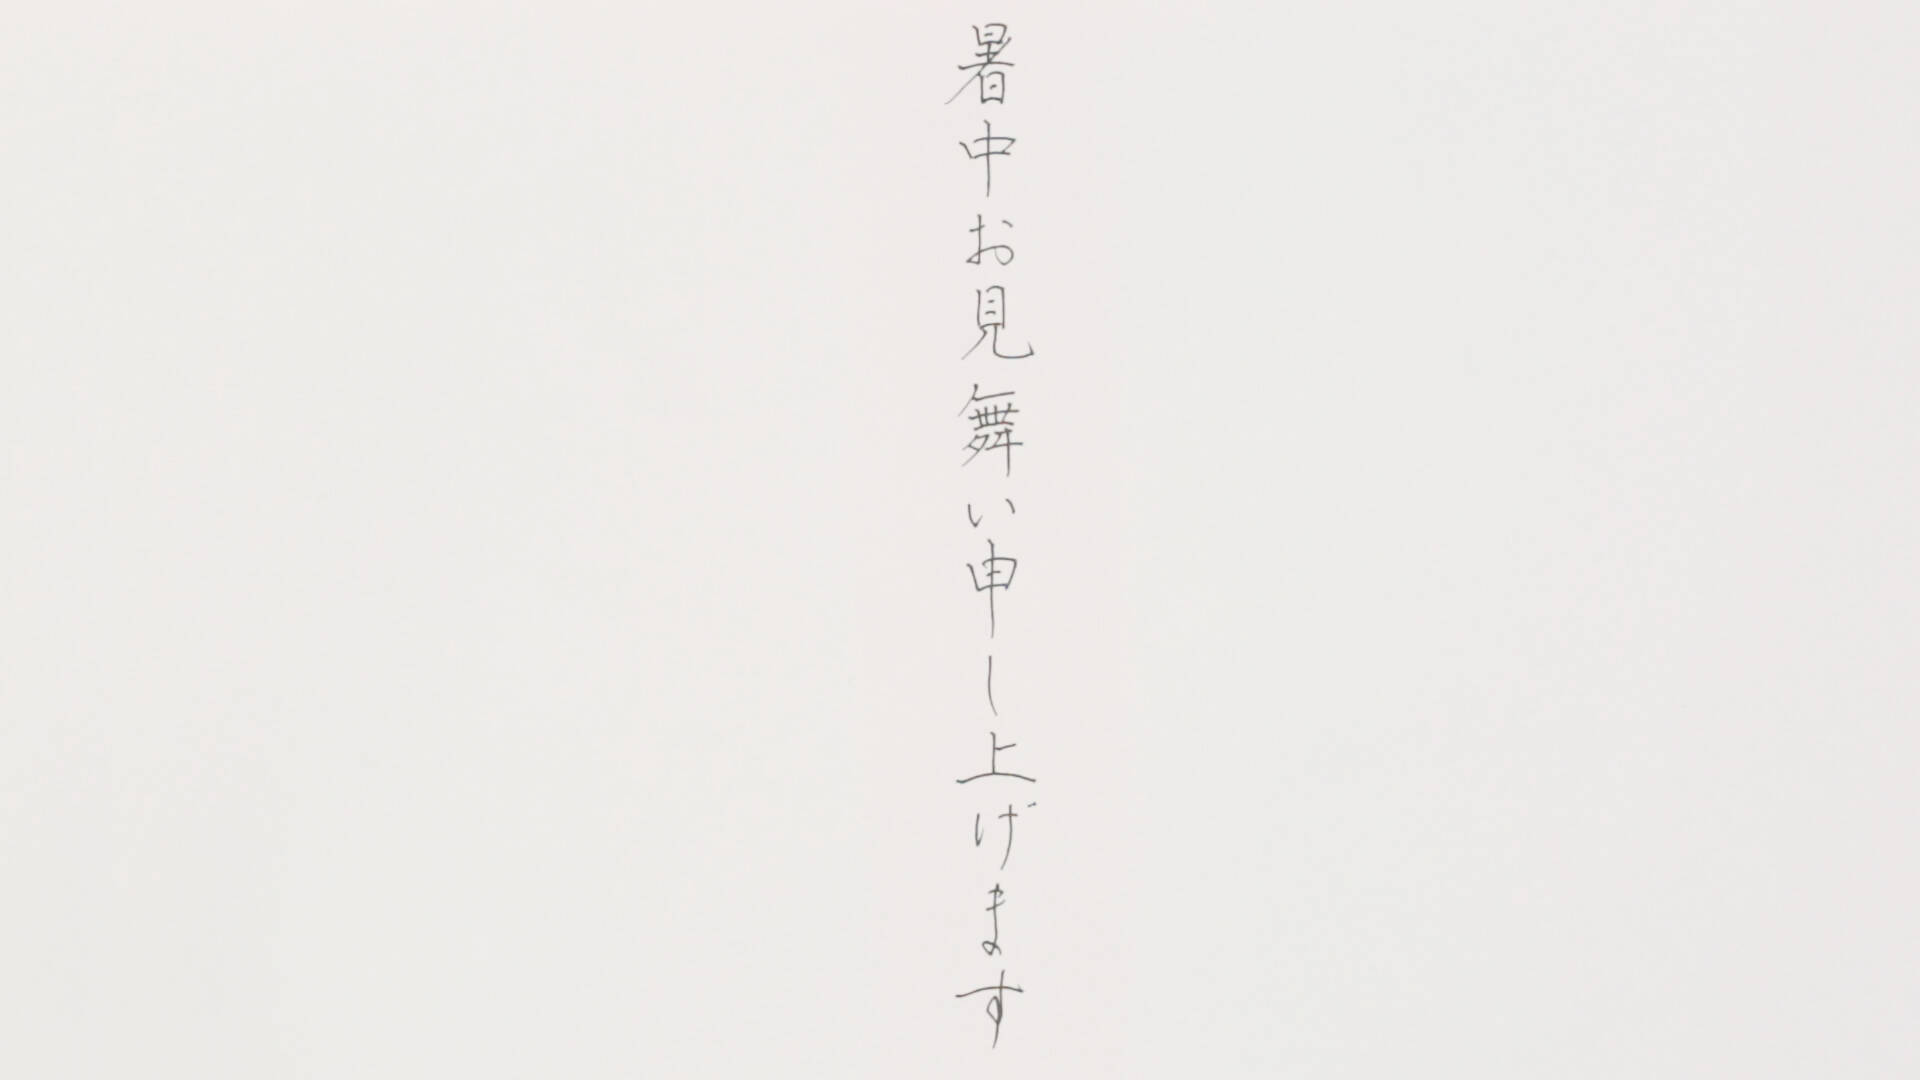 暑中お見舞い申し上げます